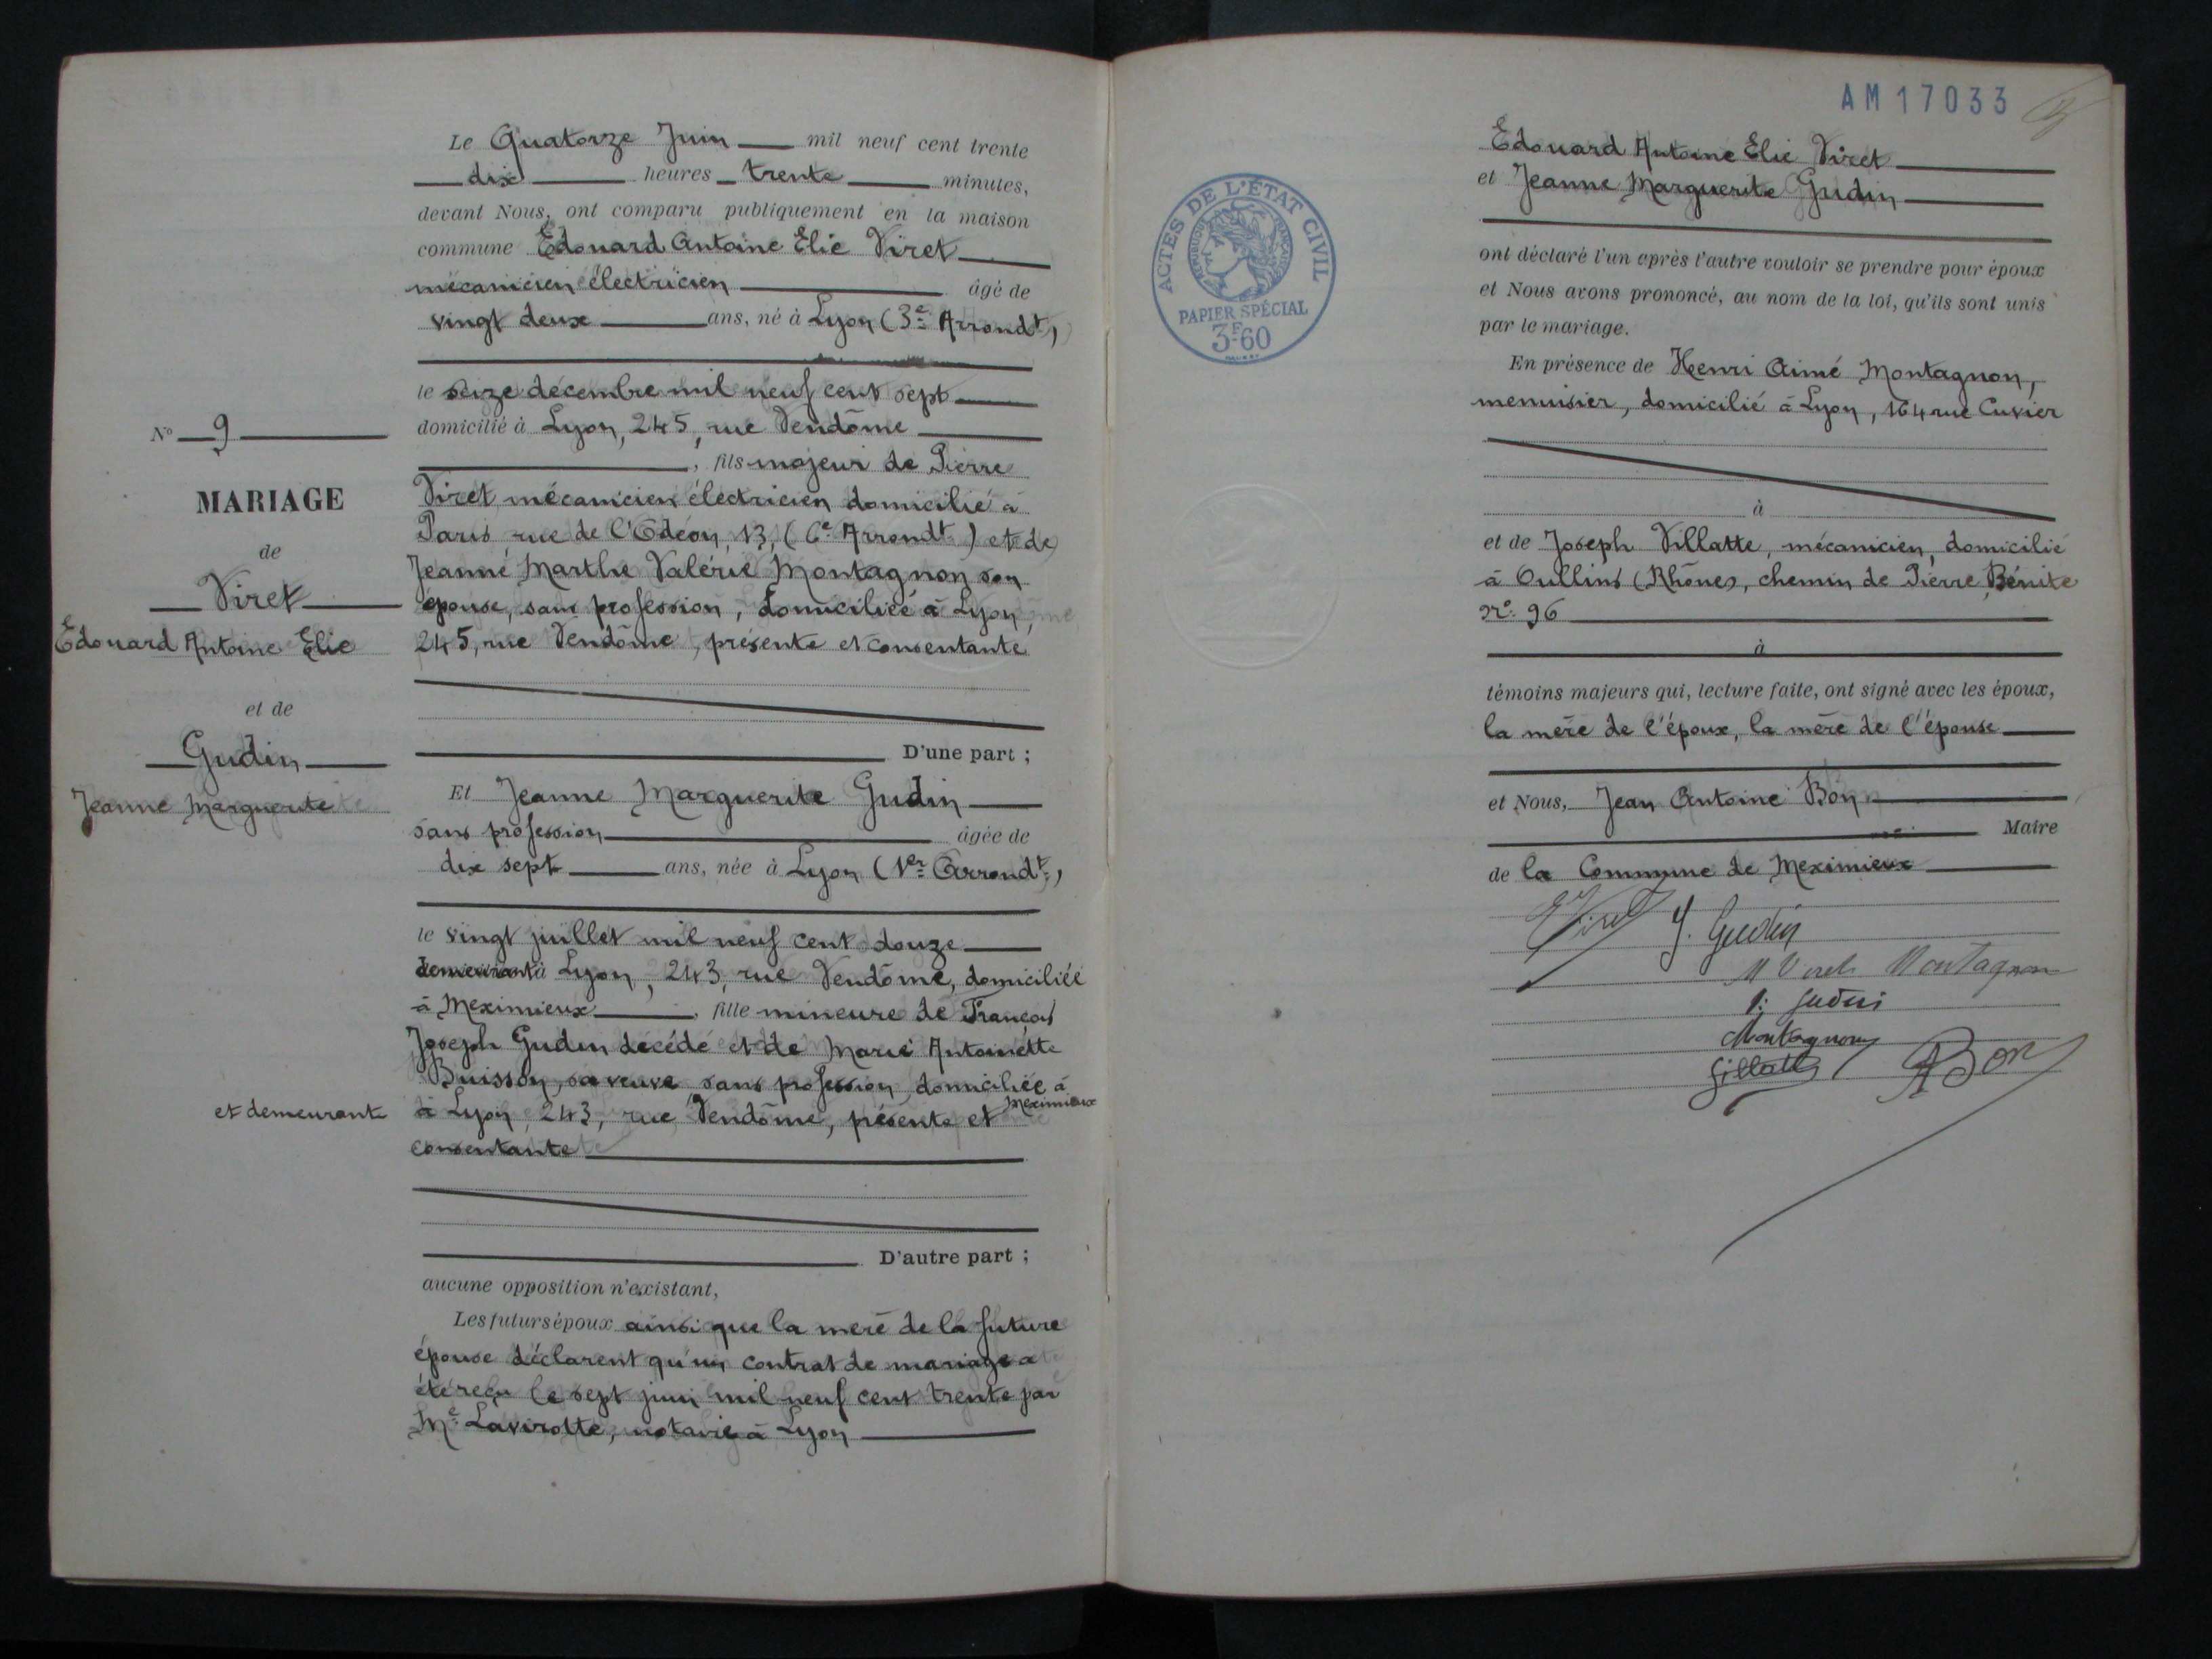 Le Quatorze Juin mil neuf cent trente
dix heures trente minutes,
devant Nous, ont comparu publiquement en la maison
commune Edouard Antoine Elie Viret
mécanicien électricien âgé de
vingt deux ans, né à Lyon (3e Arrondt)
le seize décembre mil neuf cent sept
domicilié à Lyon, 245, rue Vendôme
, fils majeur de Pierre
Viret mécanicien électricien domicilié à
Paris rue de l'Odéon, 13, (6e Arrondt) et de
Jeanne Marthe Valérie Montagnon son
épouse, sans profession, domiciliée à Lyon,
245, rue Vendôme, présente et consentante
D'une part ;
Et Jeanne Marguerite Gudin
sans profession âgée de
dix sept ans, née à Lyon (1er Arrondt)
le vingt juillet mil neuf cent douze
demeurant à Lyon, 243, rue Vendôme, domiciliée
à Meximieux, fille mineure de François
Joseph Gudin décédé et de Marie Antoinette
Buisson, sa veuve sans profession, domiciliée à
Meximieux
à Lyon, 243, rue Vendôme, présente et
consentante
D'autre part ;
aucune opposition n'existant,
Les futurs époux ainsi que la mère de la future
épouse déclarent qu'un contrat de mariage a
été reçu le sept juin mil neuf cent trente par
Me Lavirotte, notaire à Lyon
No 9
MARIAGE
de
Viret
Edouard Antoine Elie
et de
Gudin
Jeanne Marguerite
et demeurante
AM 17033
ACTES DE L'ÉTAT CIVIL
RÉPUBLIQUE FRANÇAISE
PAPIER SPÉCIAL
3F60
Edouard Antoine Elie Viret
et Jeanne Marguerite Gudin
ont déclaré l'un après l'autre vouloir se prendre pour époux
et Nous avons prononcé, au nom de la loi, qu'ils sont unis
par le mariage.
En présence de Henri Aimé Montagnon,
menuisier, domicilié à Lyon, 164 rue Cuvier
à
et de Joseph Villatte, mécanicien, domicilié
à Oullins (Rhône), chemin de Pierre Bénite
no 96
à
témoins majeurs qui, lecture faite, ont signé avec les époux,
la mère de l'époux, la mère de l'épouse
et Nous, Jean Antoine Bon
Maire
de la Commune de Meximieux
E Viret J. Gudin
M Viret Montagnon
Gudin
Montagnon
Villatte Bon